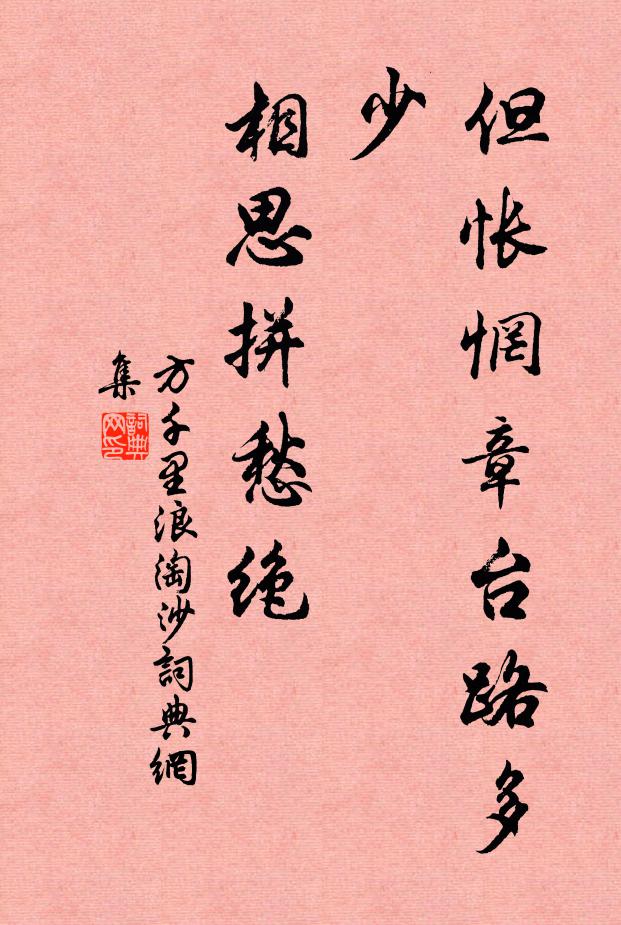 但怅惘章台路多
少
相思拼愁绝
方千里浪淘沙詞典網
集
詞典
网印